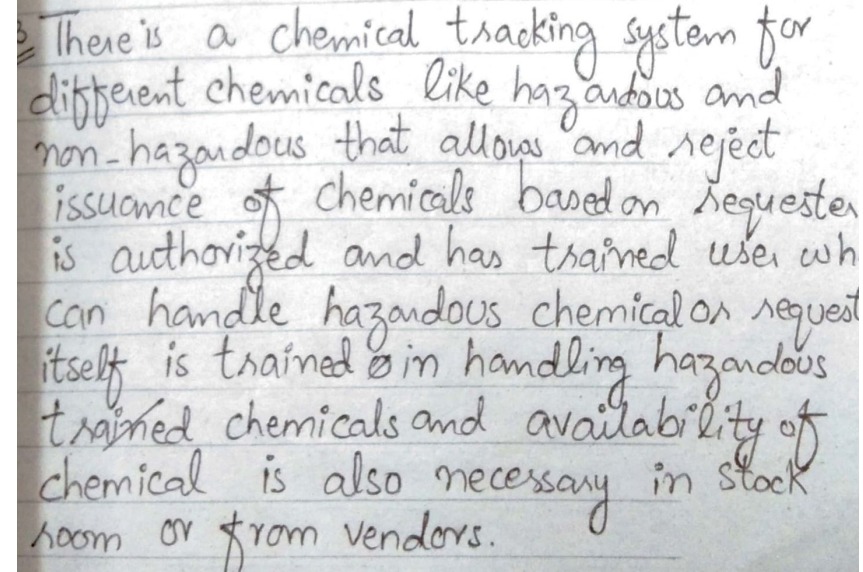 3 There is a chemical tracking system for
different chemicals like hazardous and
non-hazardous that allows and reject
issuance of chemicals based on requester
is authorized and has trained user wh
can handle hazardous chemical or request
itself is trained in handling hazardous
trained chemicals and availability of
chemical is also necessary in stock
room or from vendors.